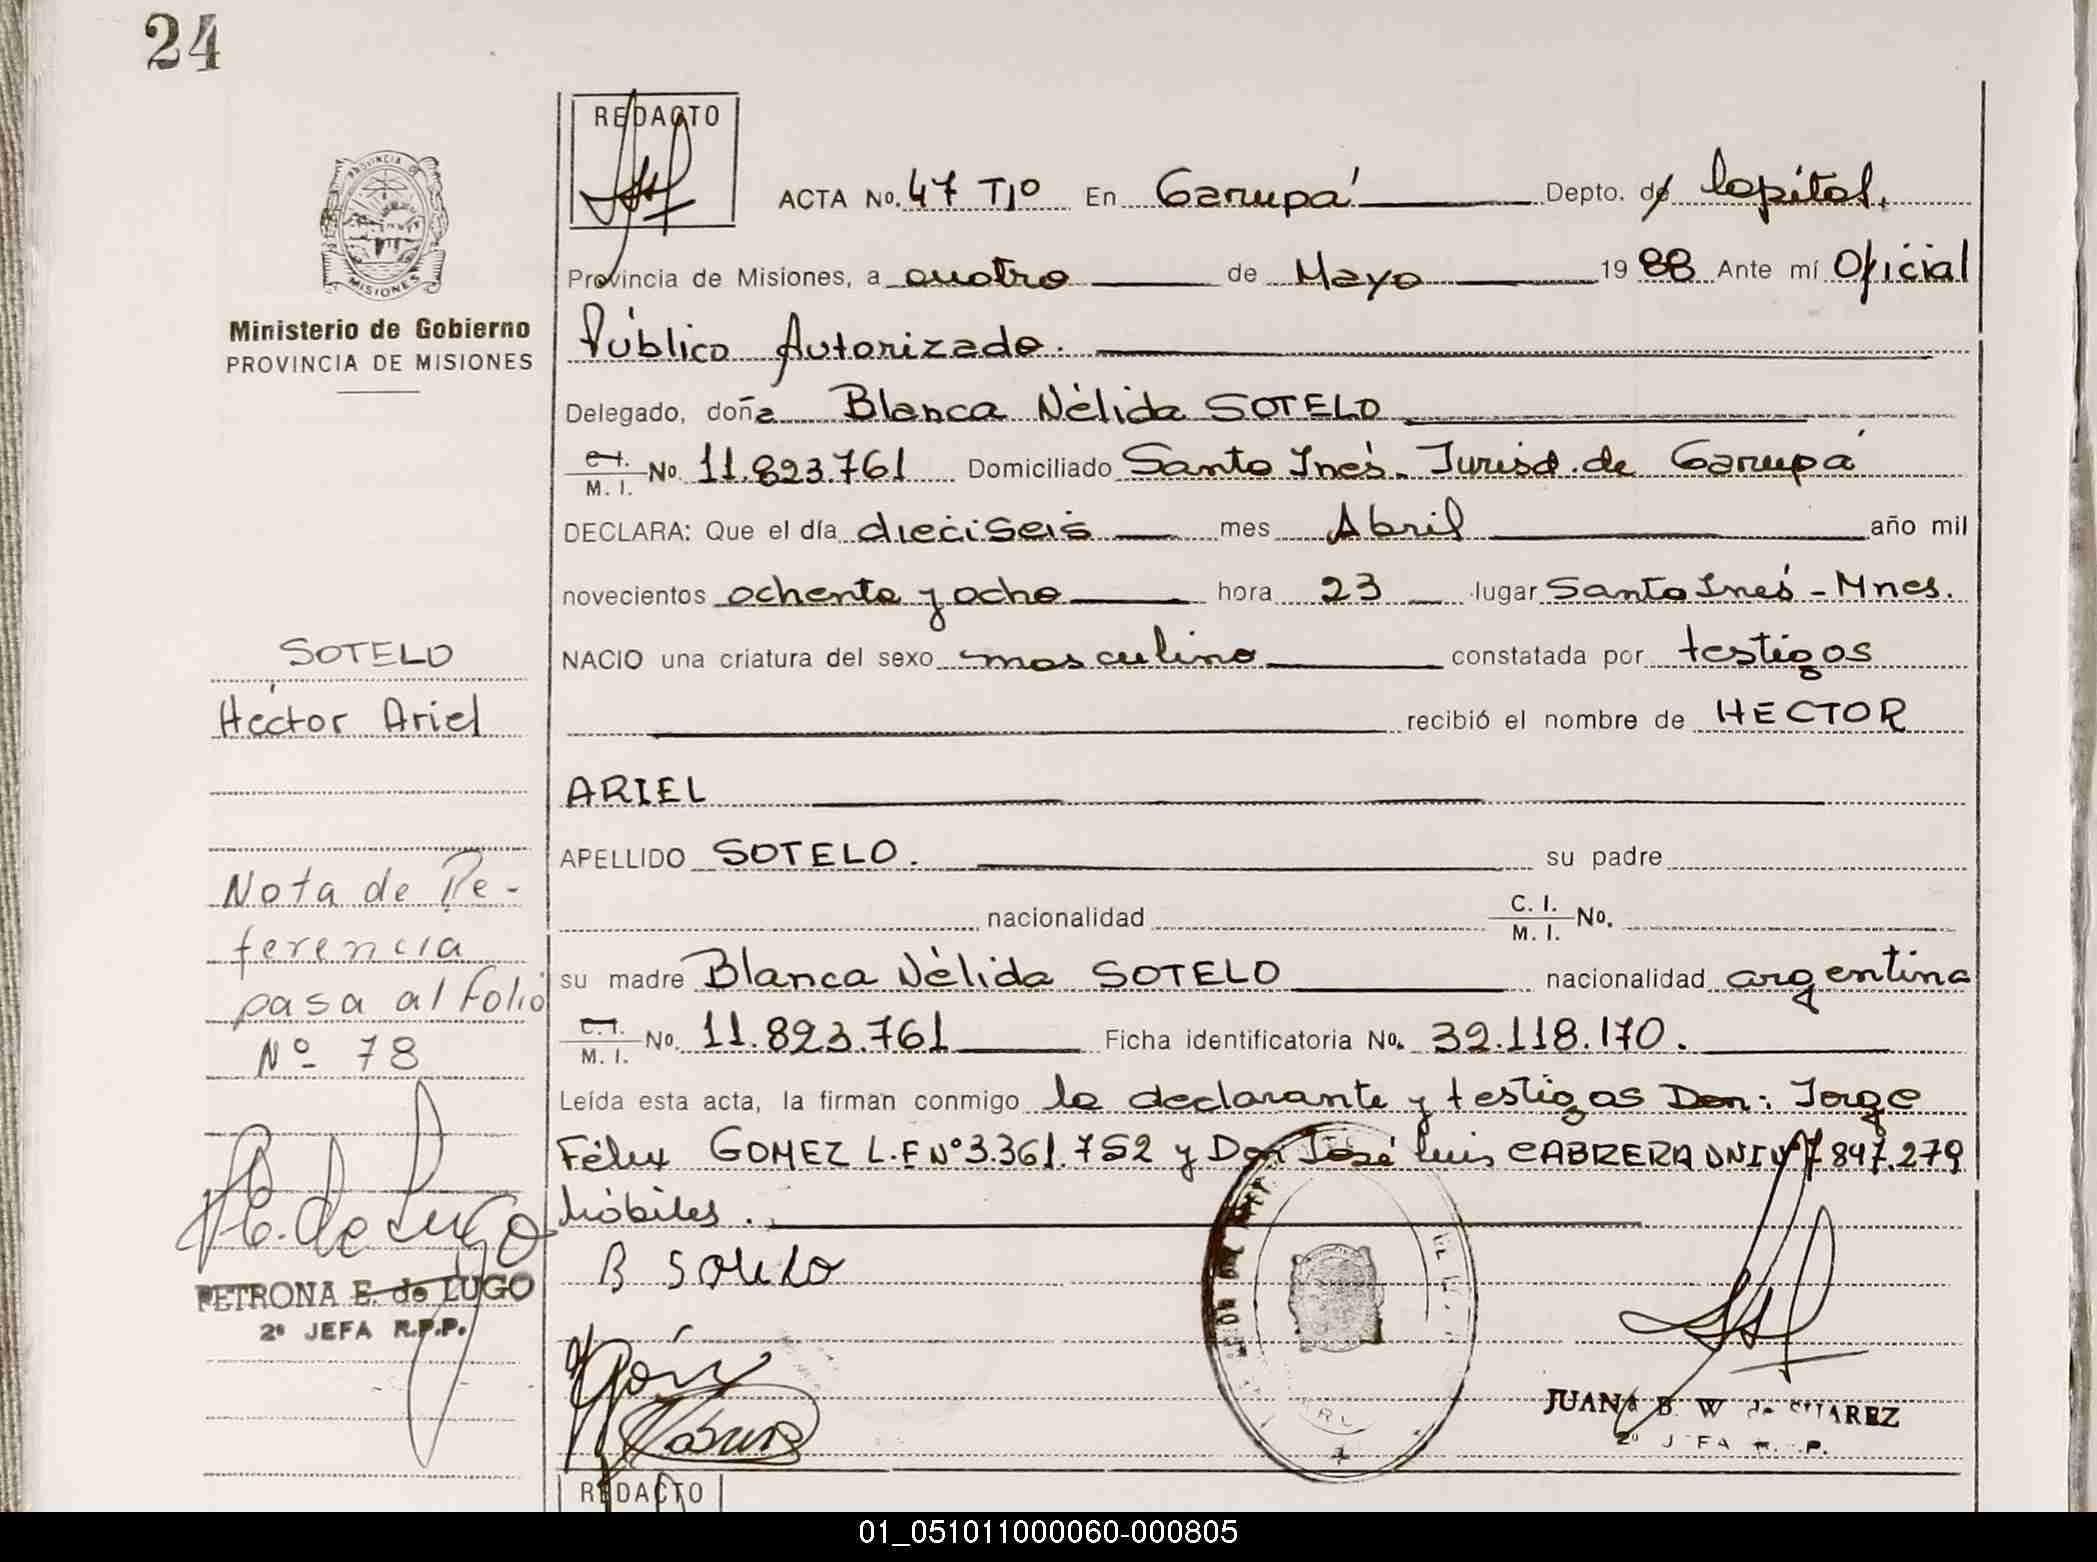 24
REDACTO
ACTA No. 47 Tº Iº En Garupá Depto. de Capital.
Provincia de Misiones, a cuatro de Mayo 1988 Ante mí Oficial
Público Autorizado.
Delegado, doña Blanca Nélida SOTELO
C.I. M. I. No. 11.823.761 Domiciliado Santa Inés - Jurisd. de Garupá
DECLARA: Que el día dieciseis mes Abril año mil
novecientos ochenta y ocho hora 23 lugar Santa Inés - Mnes.
NACIO una criatura del sexo masculino constatada por testigos
recibió el nombre de HECTOR
ARIEL
APELLIDO SOTELO. su padre
nacionalidad C. I. M. I. No.
su madre Blanca Nélida SOTELO nacionalidad argentina
C.I. M. I. No. 11.823.761 Ficha identificatoria No. 32.118.170.
Leída esta acta, la firman conmigo la declarante y testigos Don: Jorge
Félix GOMEZ L.E Nº 3.361.752 y Don José Luis CABRERA DNI Nº 7.847.279
hábiles.
B Sotelo
JUANA B. W. de SUAREZ
2º JEFA R.P.P.
REDACTO
PROVINCIA DE
MISIONES
Ministerio de Gobierno
PROVINCIA DE MISIONES
SOTELO
Héctor Ariel
Nota de Re-
ferencia
pasa al folio
Nº 78
E. de Lugo
PETRONA E. de LUGO
2º JEFA R.P.P.
01_051011000060-000805